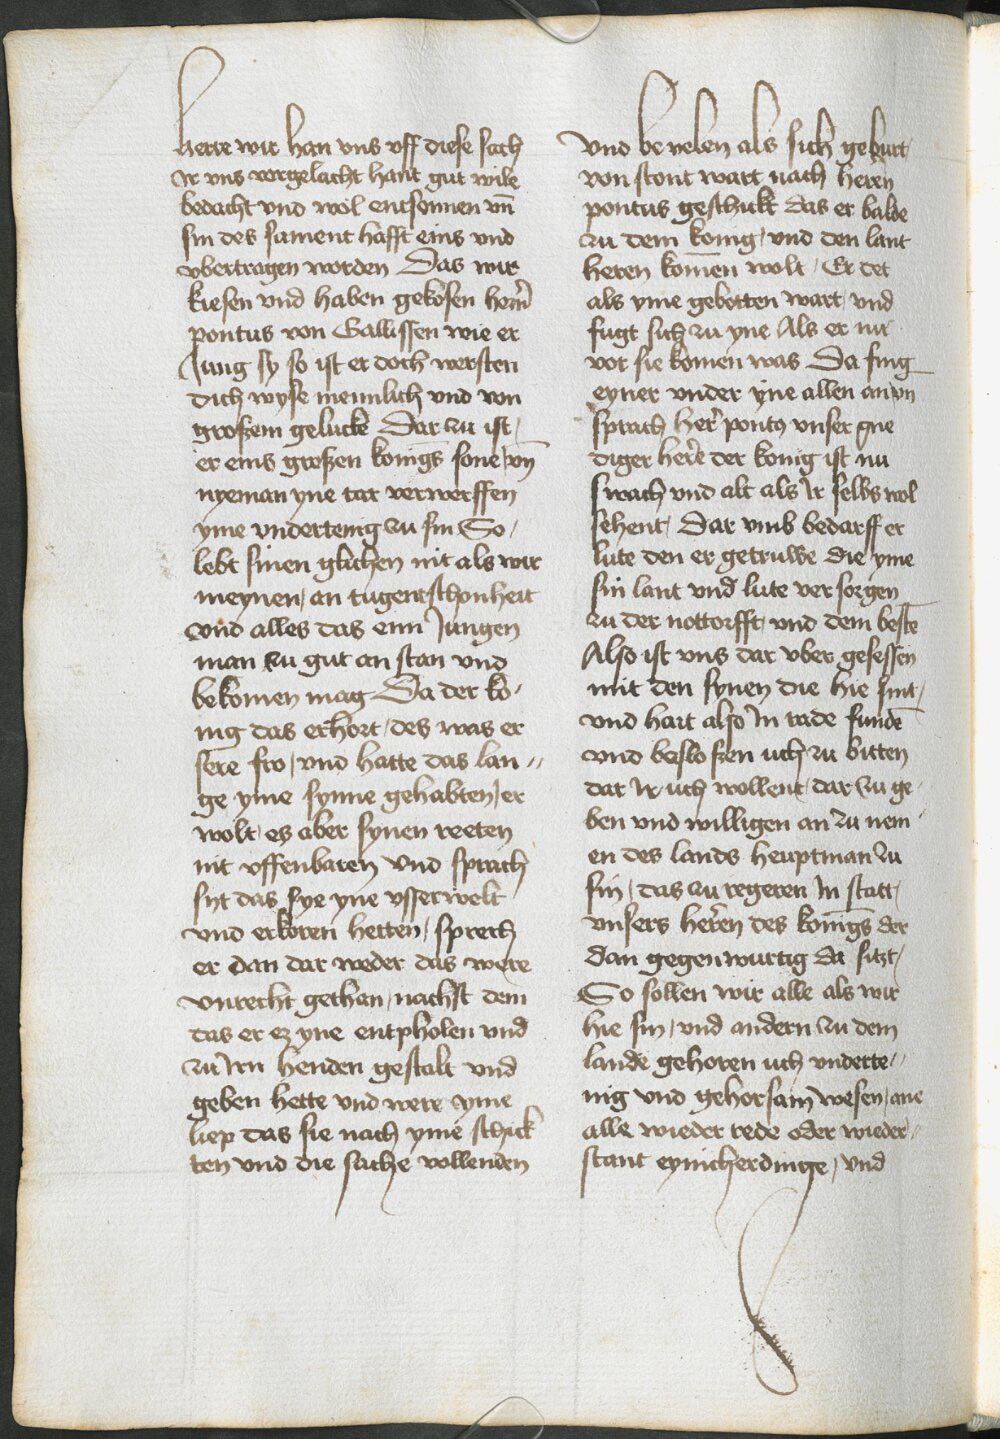 herre wir han vns vff diese sach
Ir vns vorgelacht hant gut wile
bedacht vnd wol entsonnen vn̄
sin des sament hafft eins vnd
vbertragen worden Das wir
kiesen vnd haben gekosen hern̄
pontus von Gallissen wie er
Jung sy so ist er doch
dich wyse mennlich vnd von
großem gelucke Dar zu ist /
er eins großen konigs sone / vn̄
nyeman yne tar verwerffen
yme vndertenig zu sin So /
lebt sinen glichen nit als wir
meynen / an tugent schonheit
vnd alles das eim Jungen
man zu gut an stan vnd
bekomen mag Da der ko /
nig das erhort / des was er
sere fro / vnd hatte das lan //
ge yme synne gehabten / er
wolt / ez aber synen reeten
nit vffenbaren vnd sprach
syt das sye yne vsserwelt
vnd erkoren hetten / sprech
er dan dar weder das were
vnrecht gethan / nachst dem
das er ez yne entpholen vnd
zu Irn henden gestalt vnd
geben hette vnd were yme
liep das sie nach yme schick
ten vnd die sache vollenden
vnd bevelen als sich geburt /
von stont wart nach heren
pontus geschickt das er balde
zu dem konig / vnd den lant
heren komen wolt / Er det
als yme gebotten wart / vnd
fugt sich zu yne Als er nu
vor sie komen was Da fing
eyner vnder yne allen an vn
sprach her pontus vnser gne
diger here der konig ist nu
swach vnd alt als Ir selbs wol
sehent / Dar vmb bedarff er
lute den er getruwe die yme
sin lant vnd lute versorgen
zu der nottorfft / vnd dem beste
Also ist vns dar vber gesessen
mit den synen die hie sint /
vnd hait also In rade funde
vnd beslossen uch zu bitten
dat Ir uch wollent / dar zu ge /
ben vnd willigen an zu nem /
en des lands heuptman zu
sin / das zu regeren In statt /
vnsers heren des konigs der
dan gegenwurtig da sitzt /
So sollen wir alle als wir
hie sin / vnd andern zu dem
lande gehoren uch vnderte //
nig vnd gehorsam wesen / ane
alle wieder rede oder wieder //
stant eynicherdinge / vnd